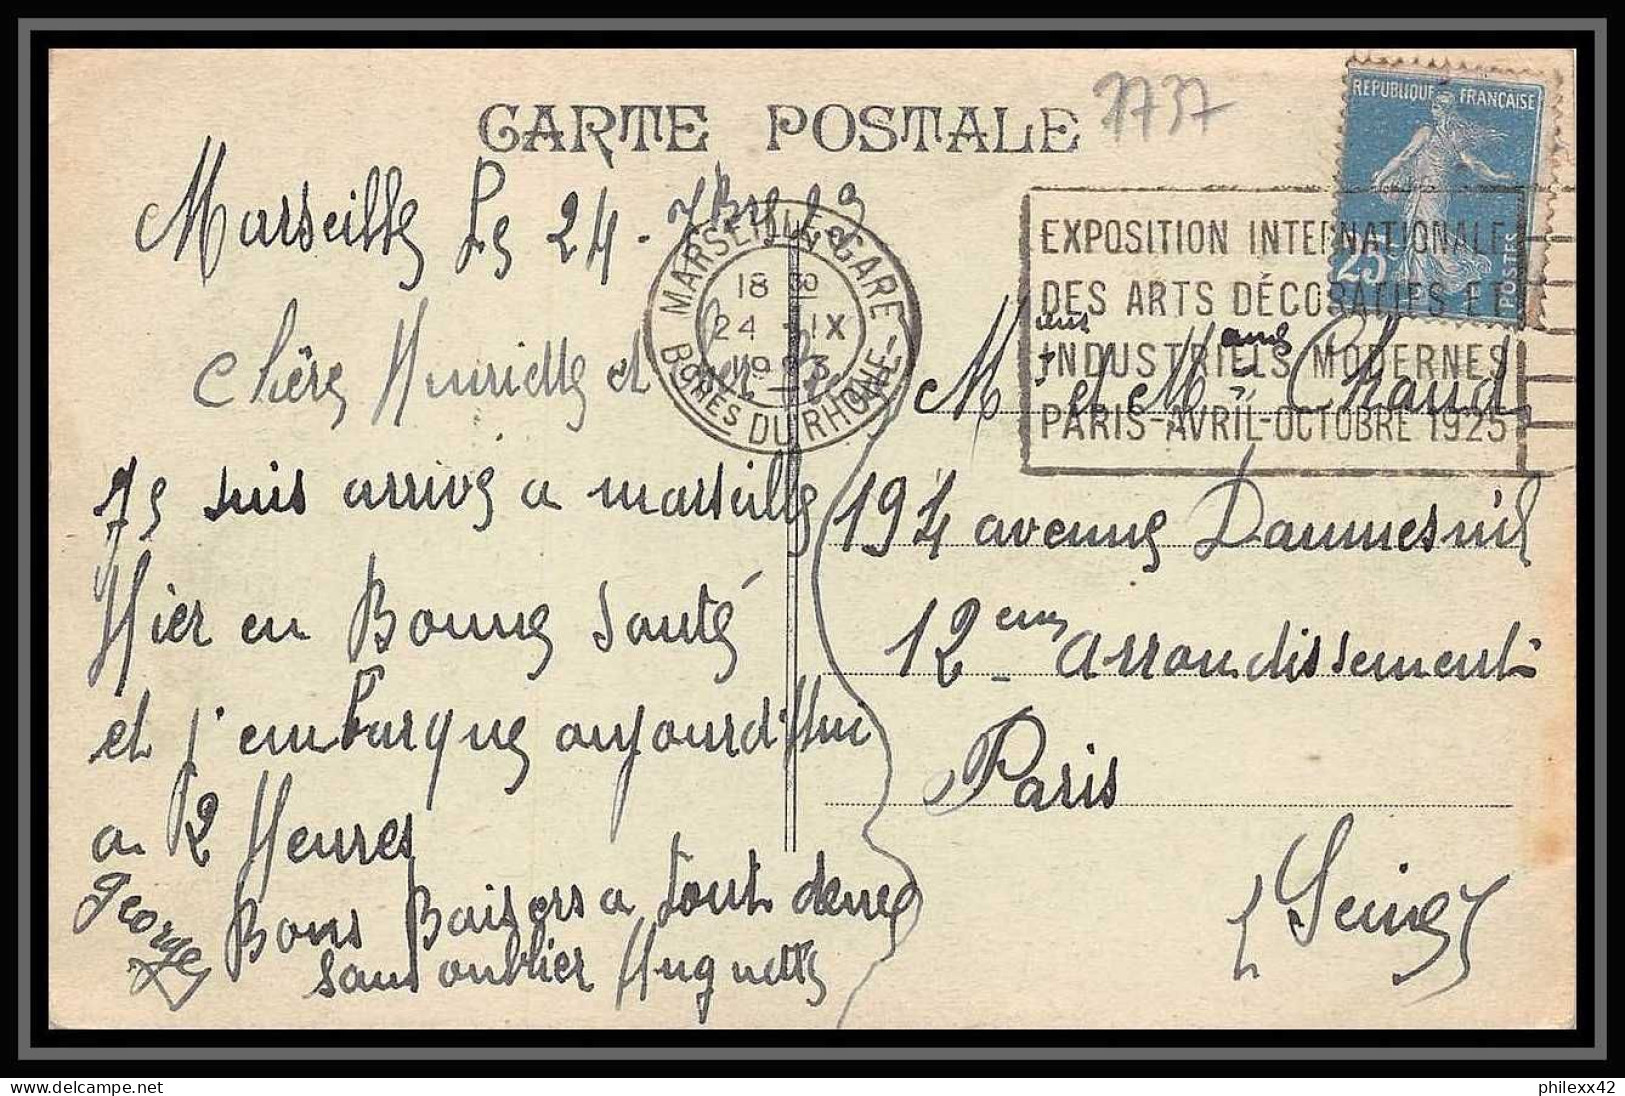 CARTE POSTALE
7737
REPUBLIQUE FRANÇAISE
25c
POSTES
EXPOSITION INTERNATIONALE
DES ARTS DÉCORATIFS ET
INDUSTRIELS MODERNES
PARIS-AVRIL-OCTOBRE 1925
MARSEILLE-GARE
18 30
24 - IX
1923
BCHES DU RHONE
Marseille Le 24 - 7Bre
Chère Henriette et
Je suis arrivé a marseille
Hier en Bonne Santé
et j'embarque aujourd'Hui
a 12 Heures
Bons Baisers a tout deux
sans oublier Huguette
George
Mieur et Mame Chaud
194 avenue Daumesnil
12eme arrondissement
Paris
(Seine)
philexx42